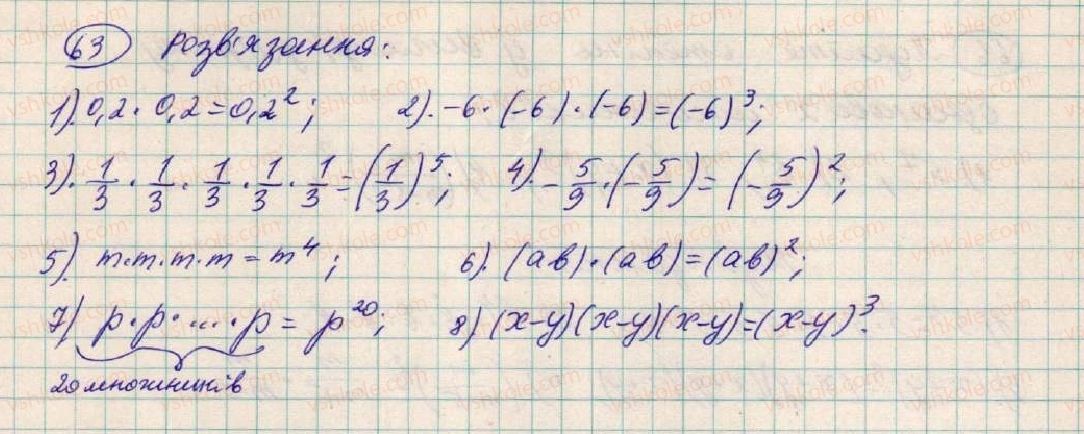 63 Розв'язання:
1). 0,2 · 0,2 = 0,2²; 2). -6 · (-6) · (-6) = (-6)³;
3). 1/3 · 1/3 · 1/3 · 1/3 · 1/3 = (1/3)⁵; 4). -5/9 · (-5/9) = (-5/9)²;
5). m·m·m·m = m⁴; 6). (ab)·(ab) = (ab)²;
7) p·p· ... ·p = p²⁰; 8) (x-y)(x-y)(x-y) = (x-y)³.
20 множників